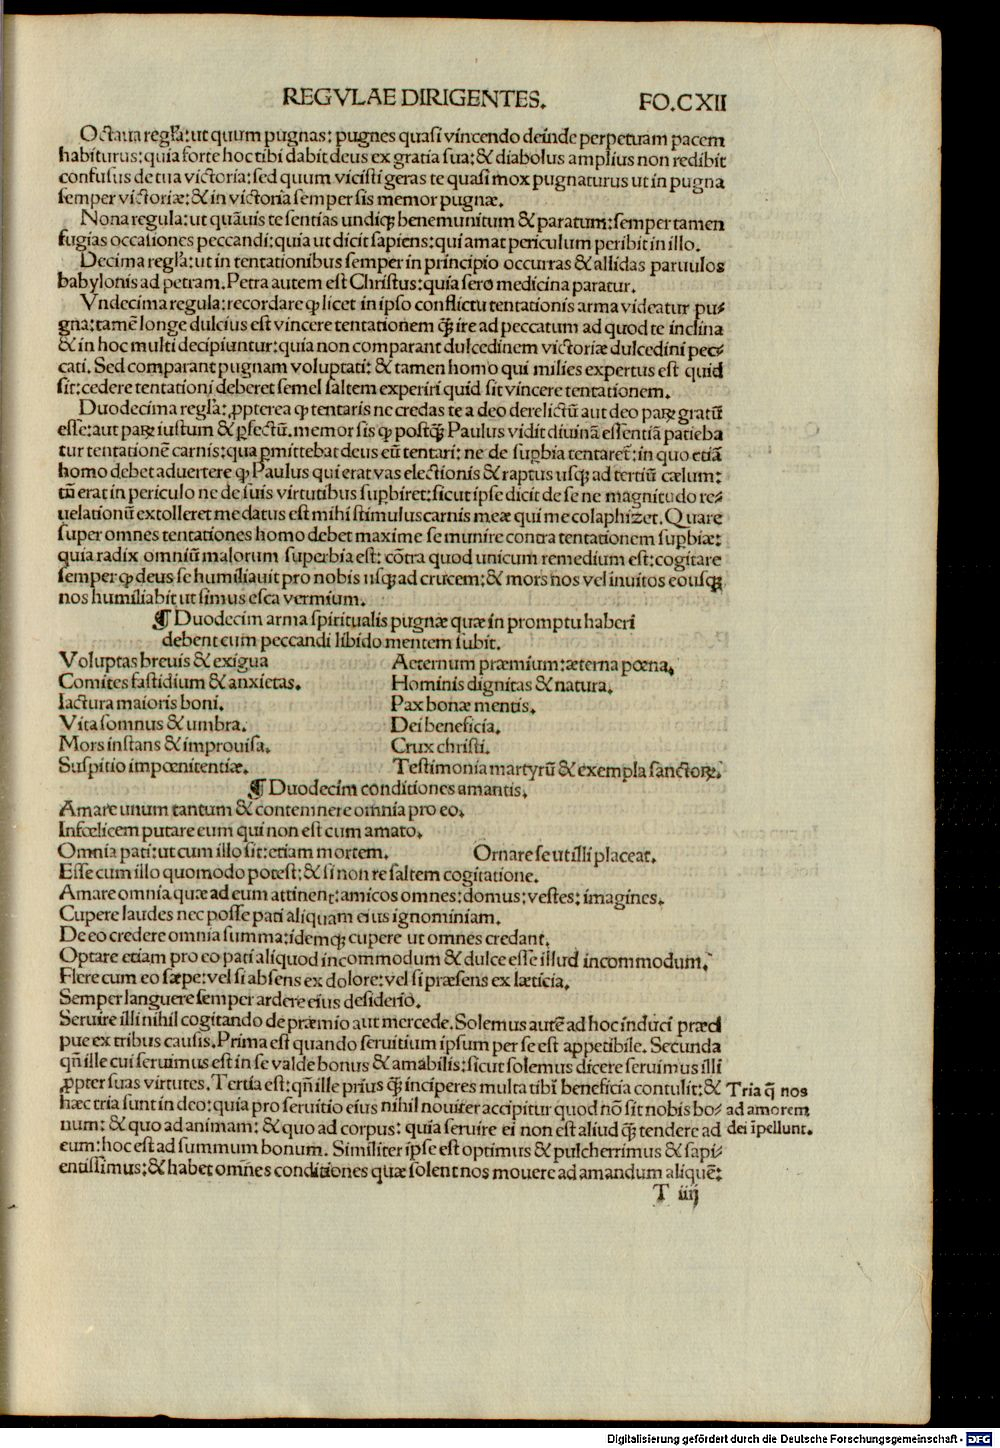 REGVLAE DIRIGENTES.
FO.CXII
Octaua regl̃a: ut quum pugnas: pugnes quasi vincendo deinde perpetuam pacem
habiturus: quia forte hoc tibi dabit deus ex gratia sua: & diabolus amplius non redibit
confusus de tua victoria: sed quum vicisti geras te quasi mox pugnaturus ut in pugna
semper victoriæ: & in victoria semper sis memor pugnæ.
Nona regula: ut quãuis te sentias undiqꝫ bene munitum & paratum: semper tamen
fugias occasiones peccandi: quia ut dicit sapiens: qui amat periculum peribit in illo.
Decima regl̃a: ut in tentationibus semper in principio occurras & allidas paruulos
babylonis ad petram. Petra autem est Christus: quia sero medicina paratur.
Vndecima regula: recordare ꝙ licet in ipso conflictu tentationis arma videatur pu⸗
gna: tamẽ longe dulcius est vincere tentationem q̃ꝫ ire ad peccatum ad quod te inclina
& in hoc multi decipiuntur: quia non comparant dulcedinem victoriæ dulcedini pec⸗
cati. Sed comparant pugnam voluptati: & tamen homo qui milies expertus est quid
sit: cedere tentationi deberet semel saltem experiri quid sit vincere tentationem.
Duodecima regl̃a: ꝓpterea ꝙ tentaris ne credas te a deo derelictũ aut deo paꝝ gratũ
esse: aut paꝝ iustum & ꝑfectũ. memor sis ꝙ postq̃ꝫ Paulus vidit diuinã essentiã patieba
tur tentationẽ carnis: qua ꝑmittebat deus eũ tentari: ne de suꝑbia tentaret̃: in quo etiã
homo debet aduertere ꝙ Paulus qui erat vas electionis & raptus usqꝫ ad tertiũ cælum:
tñ erat in periculo ne de suis virtutibus suꝑbiret: sicut ipse dicit de se ne magnitudo re⸗
uelationũ extolleret me datus est mihi stimulus carnis meæ qui me colaphizet. Quare
super omnes tentationes homo debet maxime se munire contra tentationem suꝑbiæ:
quia radix omniũ malorum superbia est: cõtra quod unicum remedium est: cogitare
semper ꝙ deus se humiliauit pro nobis usqꝫ ad crucem: & mors nos vel inuitos eousqꝫ
nos humiliabit ut simus esca vermium.
¶ Duodecim arma spiritualis pugnæ quæ in promptu haberi
debent cum peccandi libido mentem subit.
Voluptas breuis & exigua
Comites fastidium & anxietas.
Iactura maioris boni.
Vita somnus & umbra.
Mors instans & improuisa.
Suspitio impœnitentiæ.
Aeternum præmium: æterna pœna.
Hominis dignitas & natura.
Pax bonæ mentis.
Dei beneficia.
Crux christi.
Testimonia martyrũ & exempla sanctoꝝ.
¶ Duodecim conditiones amantis.
Amare unum tantum & contemnere omnia pro eo.
Infœlicem putare eum qui non est cum amato.
Omnia pati: ut cum illo sit: etiam mortem. Ornare se ut illi placeat.
Esse cum illo quomodo potest: & si non re saltem cogitatione.
Amare omnia quæ ad eum attinent: amicos omnes: domus: vestes: imagines.
Cupere laudes nec posse pati aliquam eius ignominiam.
De eo credere omnia summa: idemqꝫ cupere ut omnes credant.
Optare etiam pro eo pati aliquod incommodum & dulce esse illud incommodum.
Flere cum eo sæpe: vel si absens ex dolore: vel si præsens ex læticia.
Semper languere semper ardere eius desiderio.
Seruire illi nihil cogitando de præmio aut mercede. Solemus autẽ ad hoc induci præci
pue ex tribus causis. Prima est quando seruitium ipsum per se est appetibile. Secunda
qñ ille cui seruimus est in se valde bonus & amabilis: sicut solemus dicere seruimus illi
ꝓpter suas virtutes. Tertia est: qñ ille prius q̃ꝫ inciperes multa tibi beneficia contulit: &
hæc tria sunt in deo: quia pro seruitio eius nihil nouiter accipitur quod nõ sit nobis bo⸗
num: & quo ad animam: & quo ad corpus: quia seruire ei non est aliud q̃ꝫ tendere ad
eum: hoc est ad summum bonum. Similiter ipse est optimus & pulcherrimus & sapi⸗
entissimus: & habet om̃nes conditiones quæ solent nos mouere ad amandum aliquẽ:
Tria q̃ nos
ad amorem
dei ĩpellunt.
T iiij
Digitalisierung gefördert durch die Deutsche Forschungsgemeinschaft - DFG